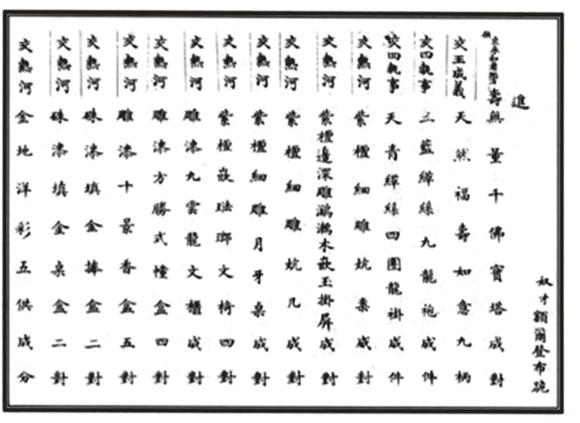 奴才額爾登布跪
進
壽無量千佛寶塔成對
交王成義 天然福壽如意九柄
交四執事 三藍緙絲九龍袍成件
交四執事 天青緙絲四團龍褂成件
交熱河 紫檀細雕炕案成對
交熱河 紫檀邊深雕鸂鶒木嵌玉掛屏成對
交熱河 紫檀細雕炕几成對
交熱河 紫檀細雕月牙桌成對
交熱河 紫檀嵌琺瑯文椅四對
交熱河 雕漆九雲龍文櫃成對
交熱河 雕漆方勝式幢盒四對
交熱河 雕漆十景香盒五對
交熱河 硃漆填金捧盒二對
交熱河 硃漆填金桌盒二對
交熱河 金地洋彩五供成分